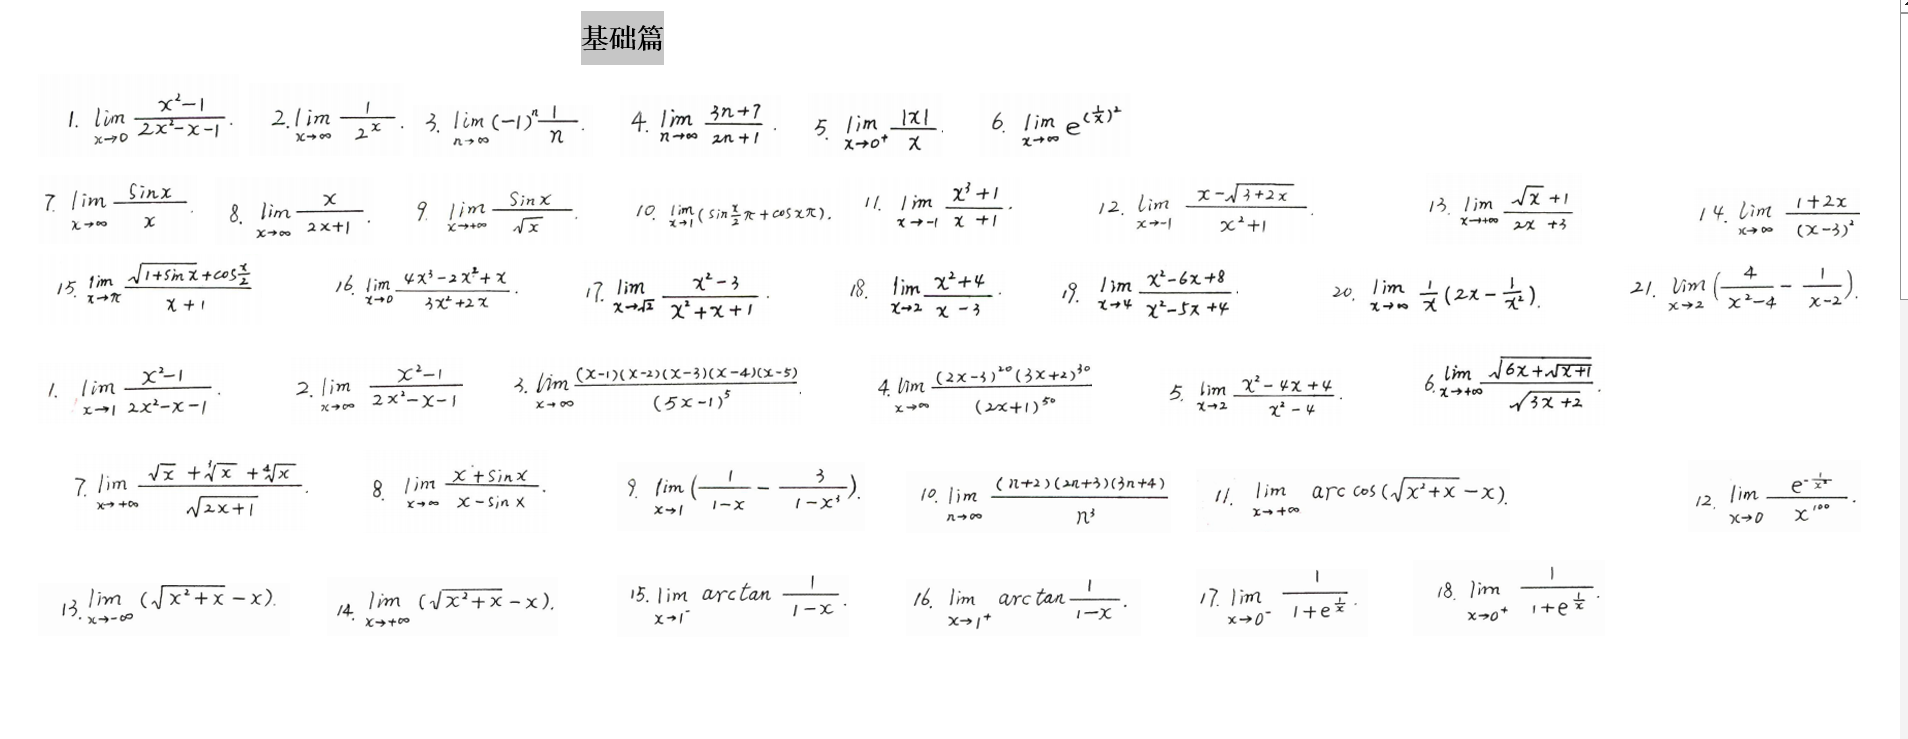 基础篇
1. lim_{x→0} (x²-1)/(2x²-x-1). 2. lim_{x→∞} 1/2^x. 3. lim_{n→∞} (-1)^n 1/n. 4. lim_{n→∞} (3n+7)/(2n+1). 5. lim_{x→0⁺} |x|/x. 6. lim_{x→∞} e^{(1/x)²}
7. lim_{x→∞} sinx/x. 8. lim_{x→∞} x/(2x+1). 9. lim_{x→+∞} sinx/√x. 10. lim_{x→1} (sin x/2 π + cosxπ). 11. lim_{x→-1} (x³+1)/(x+1). 12. lim_{x→-1} (x-√(3+2x))/(x²+1). 13. lim_{x→+∞} (√x+1)/(2x+3) 14. lim_{x→∞} (1+2x)/(x-3)²
15. lim_{x→π} (√(1+sinx)+cos x/2)/(x+1) 16. lim_{x→0} (4x³-2x²+x)/(3x²+2x). 17. lim_{x→√2} (x²-3)/(x²+x+1). 18. lim_{x→2} (x²+4)/(x-3). 19. lim_{x→4} (x²-6x+8)/(x²-5x+4). 20. lim_{x→∞} 1/x (2x-1/x²). 21. lim_{x→2} (4/(x²-4) - 1/(x-2)).
1. lim_{x→1} (x²-1)/(2x²-x-1). 2. lim_{x→∞} (x²-1)/(2x²-x-1) 3. lim_{x→∞} (x-1)(x-2)(x-3)(x-4)(x-5)/(5x-1)⁵. 4. lim_{x→∞} (2x-3)²⁰(3x+2)³⁰/(2x+1)⁵⁰ 5. lim_{x→2} (x²-4x+4)/(x²-4). 6. lim_{x→+∞} √(6x+√(x+1))/√(3x+2).
7. lim_{x→+∞} (√x+∛x+∜x)/√(2x+1). 8. lim_{x→∞} (x+sinx)/(x-sinx). 9. lim_{x→1} (1/(1-x) - 3/(1-x³)). 10. lim_{n→∞} (n+2)(2n+3)(3n+4)/n³ 11. lim_{x→+∞} arccos(√(x²+x)-x). 12. lim_{x→0} e^{-1/x²}/x¹⁰⁰.
13. lim_{x→-∞} (√(x²+x)-x). 14. lim_{x→+∞} (√(x²+x)-x). 15. lim_{x→1⁻} arctan 1/(1-x). 16. lim_{x→1⁺} arctan 1/(1-x). 17. lim_{x→0⁻} 1/(1+e^{1/x}). 18. lim_{x→0⁺} 1/(1+e^{1/x}).